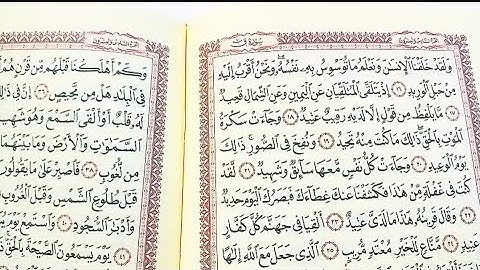 سُورَةُ ق
الجزء السادس والعشرون
وَلَقَدْ خَلَقْنَا ٱلْإِنسَٰنَ وَنَعْلَمُ مَا تُوَسْوِسُ بِهِۦ نَفْسُهُۥ وَنَحْنُ أَقْرَبُ إِلَيْهِ
مِنْ حَبْلِ ٱلْوَرِيدِ ١٦ إِذْ يَتَلَقَّى ٱلْمُتَلَقِّيَانِ عَنِ ٱلْيَمِينِ وَعَنِ ٱلشِّمَالِ قَعِيدٌ
١٧ مَّا يَلْفِظُ مِن قَوْلٍ إِلَّا لَدَيْهِ رَقِيبٌ عَتِيدٌ ١٨ وَجَآءَتْ سَكْرَةُ
ٱلْمَوْتِ بِٱلْحَقِّ ذَٰلِكَ مَا كُنتَ مِنْهُ تَحِيدُ ١٩ وَنُفِخَ فِى ٱلصُّورِ ذَٰلِكَ
يَوْمُ ٱلْوَعِيدِ ٢٠ وَجَآءَتْ كُلُّ نَفْسٍ مَّعَهَا سَآئِقٌ وَشَهِيدٌ ٢١ لَّقَدْ
كُنتَ فِى غَفْلَةٍ مِّنْ هَٰذَا فَكَشَفْنَا عَنكَ غِطَآءَكَ فَبَصَرُكَ ٱلْيَوْمَ حَدِيدٌ
٢٢ وَقَالَ قَرِينُهُۥ هَٰذَا مَا لَدَىَّ عَتِيدٌ ٢٣ أَلْقِيَا فِى جَهَنَّمَ كُلَّ كَفَّارٍ
عَنِيدٍ ٢٤ مَّنَّاعٍ لِّلْخَيْرِ مُعْتَدٍ مُّرِيبٍ ٢٥ ٱلَّذِى جَعَلَ مَعَ ٱللَّهِ إِلَٰهًا
الجزء السادس والعشرون
وَكَمْ أَهْلَكْنَا قَبْلَهُم مِّن قَرْنٍ هُمْ
فِى ٱلْبِلَٰدِ هَلْ مِن مَّحِيصٍ ٣٦ إِنَّ فِى ذَٰلِكَ
لَهُۥ قَلْبٌ أَوْ أَلْقَى ٱلسَّمْعَ وَهُوَ شَهِيدٌ
ٱلسَّمَٰوَٰتِ وَٱلْأَرْضَ وَمَا بَيْنَهُمَا
مِن لُّغُوبٍ ٣٨ فَٱصْبِرْ عَلَىٰ مَا يَقُولُونَ
قَبْلَ طُلُوعِ ٱلشَّمْسِ وَقَبْلَ ٱلْغُرُوبِ
وَأَدْبَٰرَ ٱلسُّجُودِ ٤٠ وَٱسْتَمِعْ يَوْمَ
يَوْمَ يَسْمَعُونَ ٱلصَّيْحَةَ بِٱلْحَقِّ ذَٰلِكَ